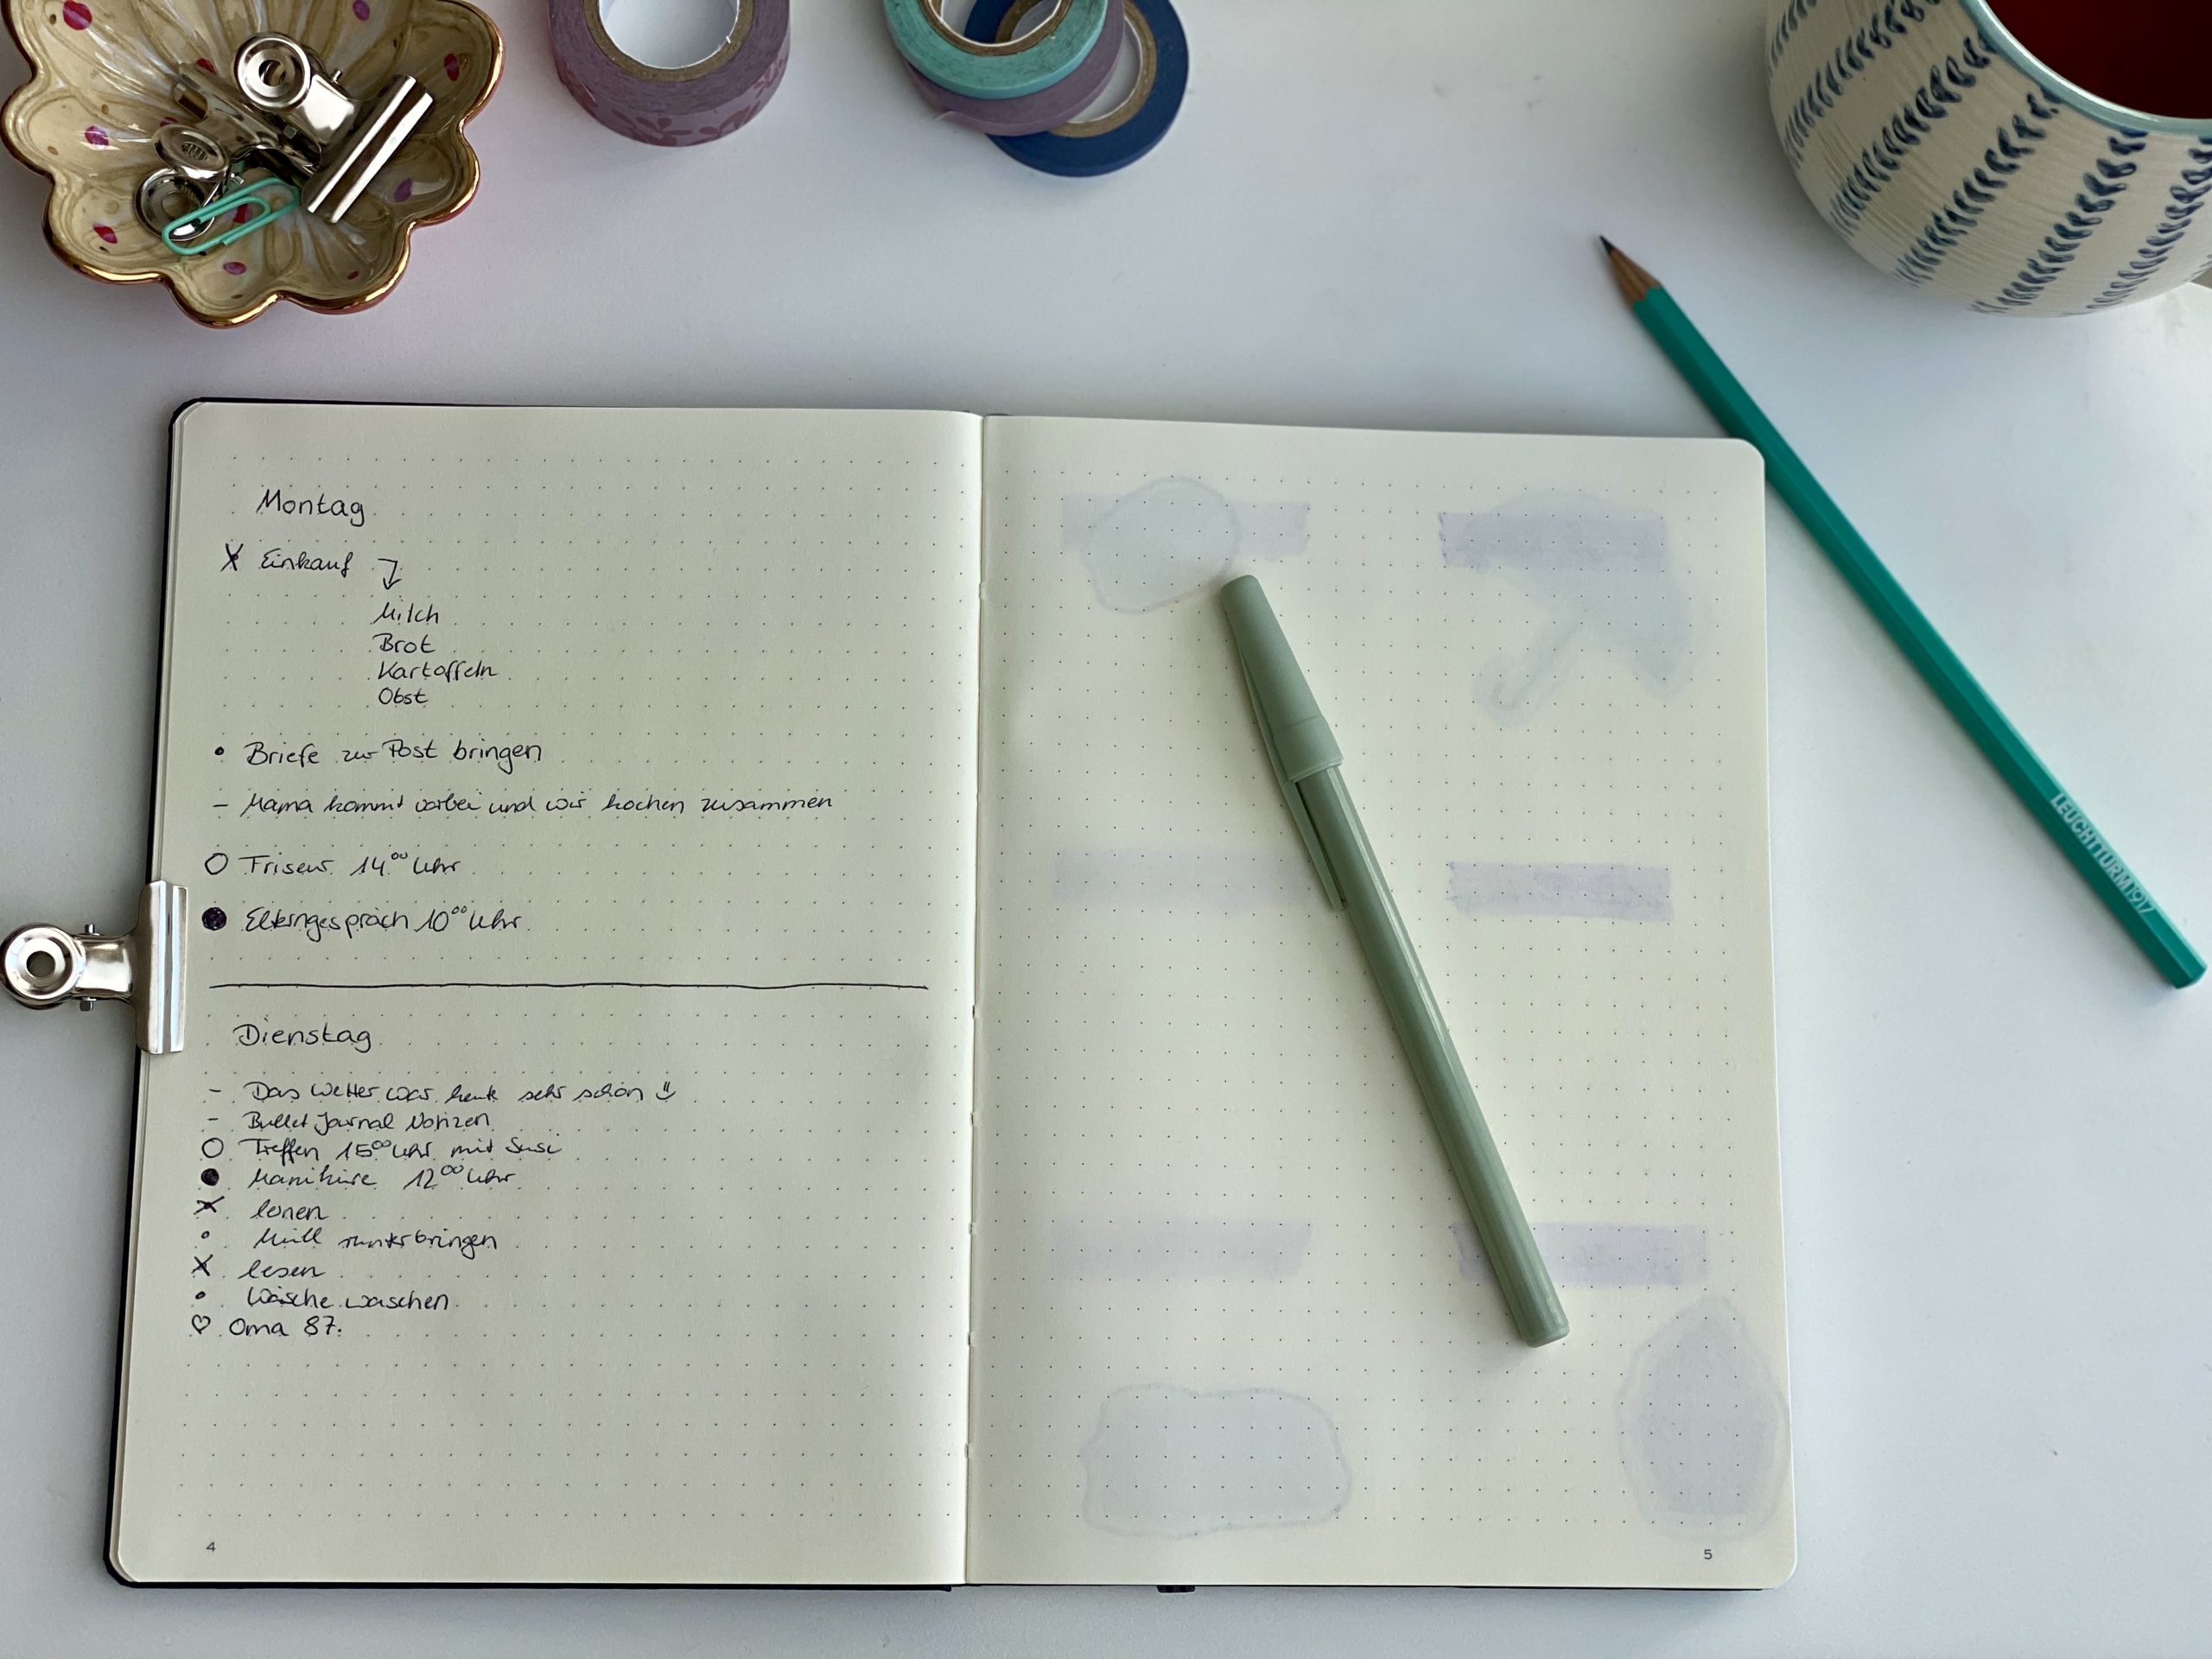 Montag
X Einkauf ↴
Milch
Brot
Kartoffeln
Obst
• Briefe zur Post bringen
– Mama kommt vorbei und wir kochen zusammen
○ Friseur 14⁰⁰ Uhr
● Elterngespräch 10⁰⁰ Uhr
Dienstag
– Das Wetter war heute sehr schön
– Bullet Journal Notizen
○ Treffen 15⁰⁰ Uhr mit Susi
● Maniküre 12⁰⁰ Uhr
X lernen
• Müll runterbringen
X lesen
• Wäsche waschen
♡ Oma 87.
4
5
LEUCHTTURM1917